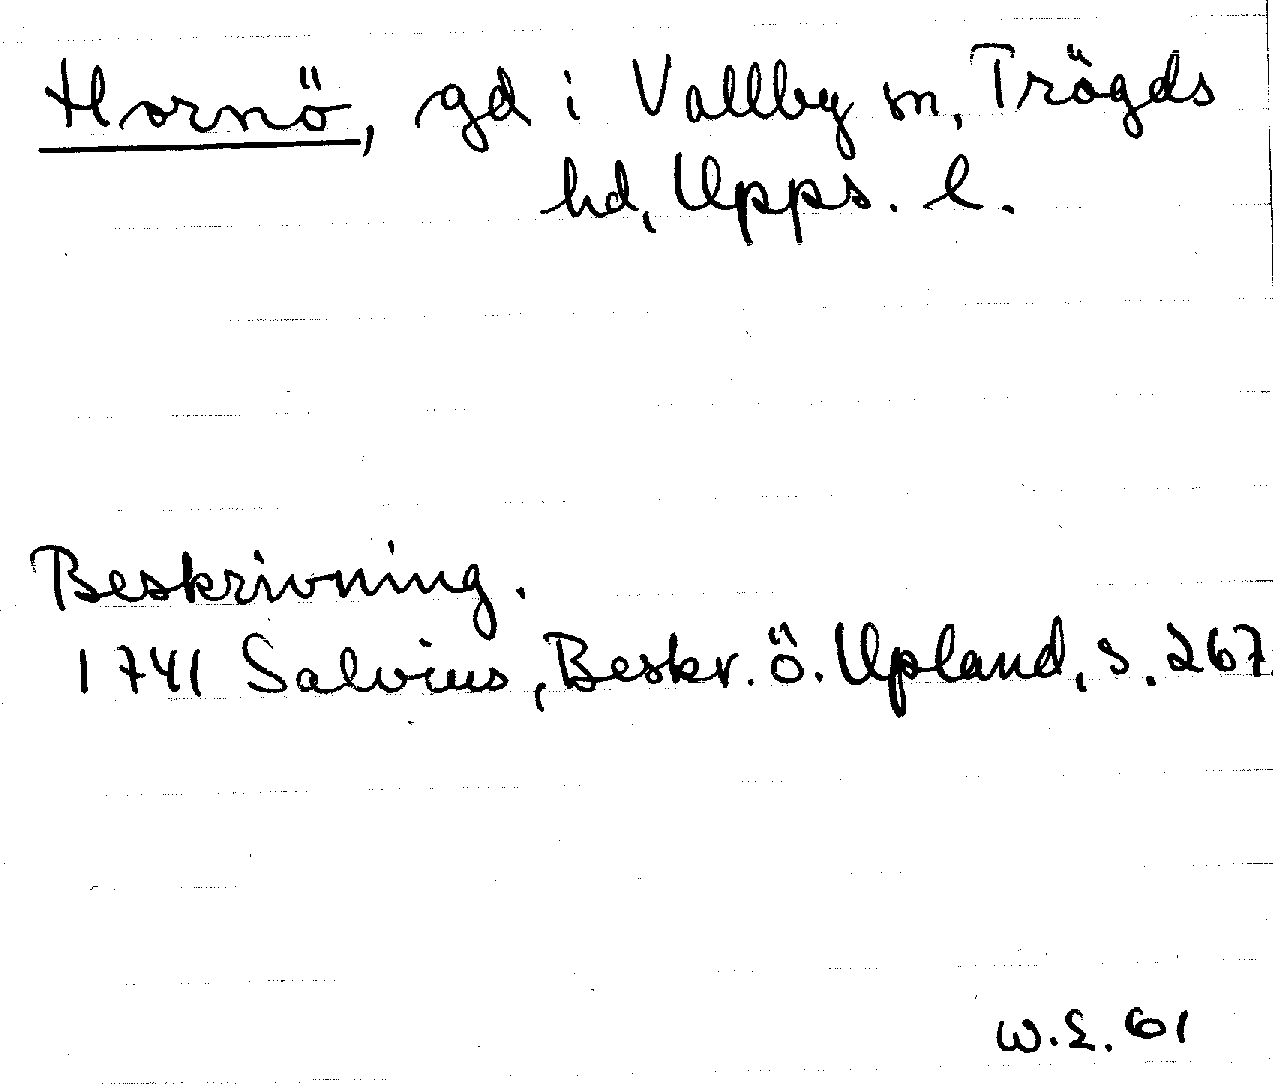 Hornö, gd i Vallby sn, Trögds
hd, Upps. l.
Beskrivning.
1741 Salvius, Beskr. ö. Upland, s. 267
W.E. 61